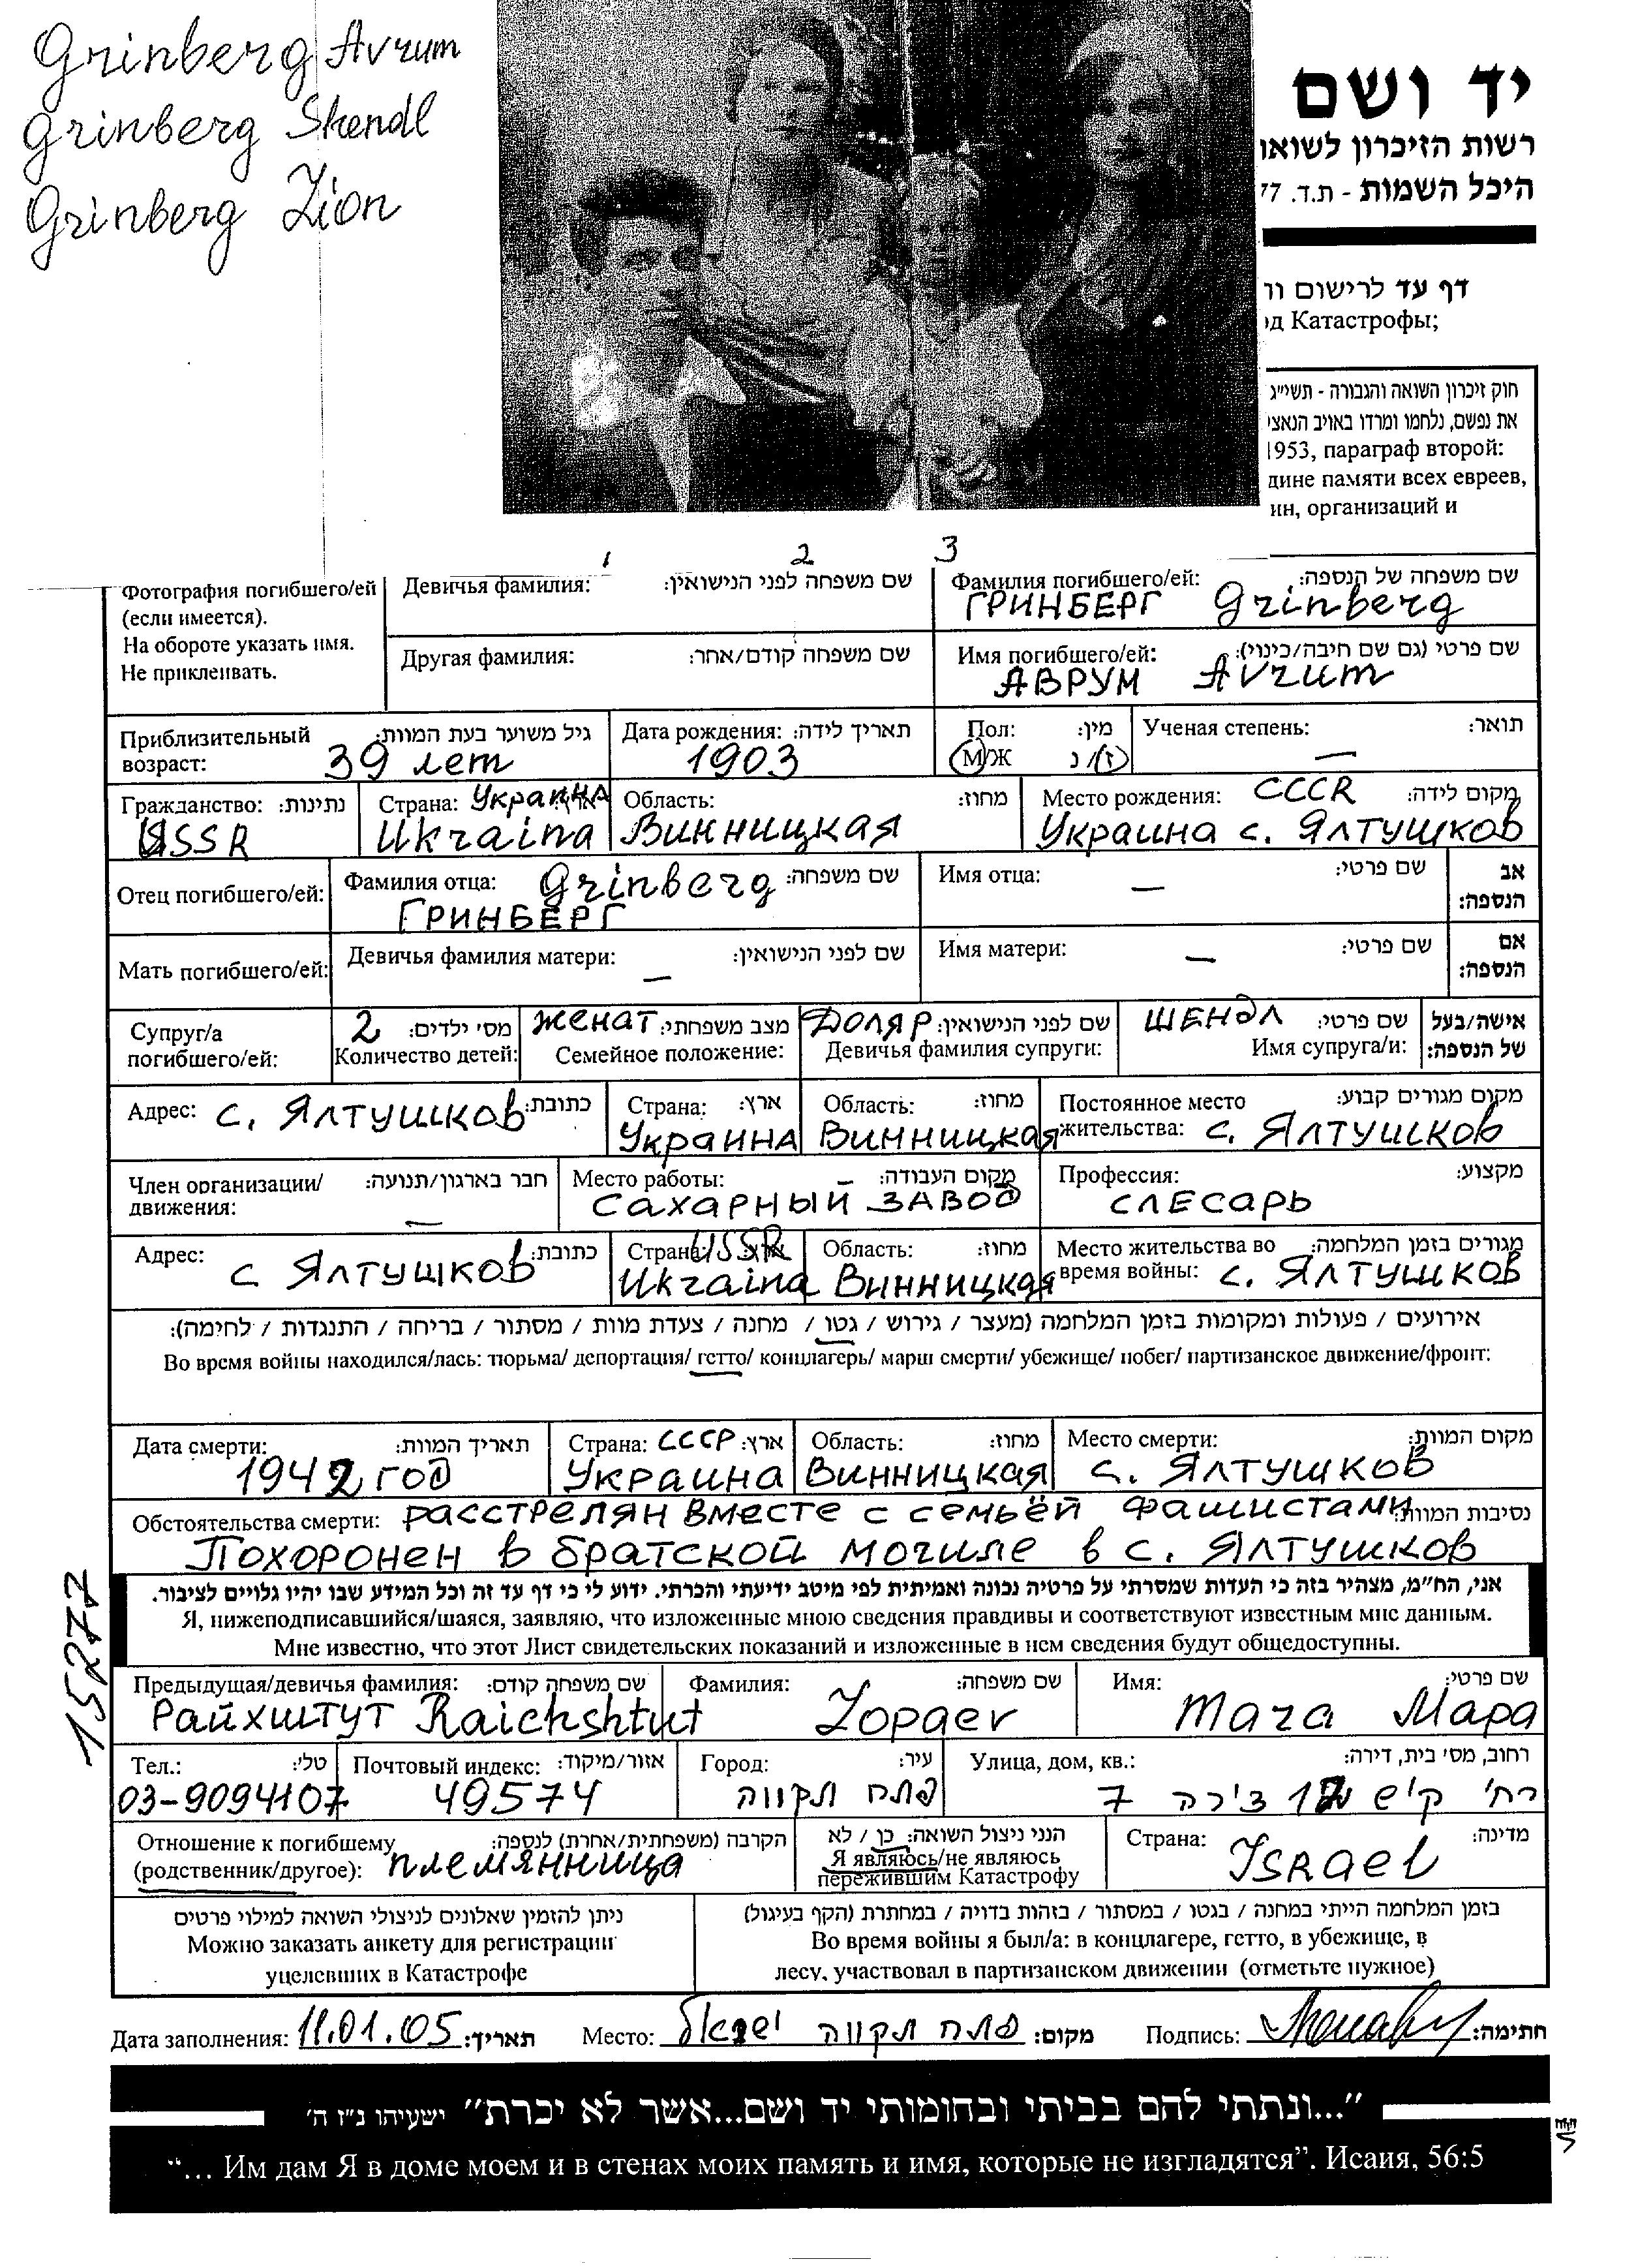 Grinberg Avrum
Grinberg Shendl
Grinberg Zion
יד ושם
רשות הזיכרון לשואו
היכל השמות - ת.ד. 77
דף עד לרישום וו
од Катастрофы;
חוק זיכרון השואה והגבורה - תשי״ג
את נפשם, נלחמו ומרדו באויב הנאצי
1953, параграф второй:
дине памяти всех евреев,
ин, организаций и
1 2 3
Фотография погибшего/ей
(если имеется).
На обороте указать имя.
Не приклеивать.
Девичья фамилия: שם משפחה לפני הנישואין:
Фамилия погибшего/ей: שם משפחה של הנספה:
ГРИНБЕРГ Grinberg
Другая фамилия: שם משפחה קודם/אחר:
Имя погибшего/ей: שם פרטי (גם שם חיבה/כינוי):
АВРУМ Avrum
Приблизительный возраст: גיל משוער בעת המוות:
39 лет
Дата рождения: תאריך לידה:
1903
Пол: מין:
М/Ж ז/נ
Ученая степень: תואר:
—
Гражданство: נתינות:
USSR
Страна: Украина ארץ:
Ukraina
Область: מחוז:
Винницкая
Место рождения: СССR מקום לידה:
Украина с. Ялтушков
Отец погибшего/ей:
Фамилия отца: Grinberg שם משפחה:
ГРИНБЕРГ
Имя отца: — שם פרטי:
אב הנספה:
Мать погибшего/ей:
Девичья фамилия матери: שם לפני הנישואין:
—
Имя матери: — שם פרטי:
אם הנספה:
Супруг/а погибшего/ей:
2 מס׳ ילדים:
Количество детей:
женат מצב משפחתי:
Семейное положение:
Доляр שם לפני הנישואין:
Девичья фамилия супруги:
Шендл שם פרטי:
Имя супруга/и:
אישה/בעל של הנספה:
Адрес: с. Ялтушков כתובת:
Страна: ארץ:
Украина
Область: מחוז:
Винницкая
Постоянное место מקום מגורים קבוע:
жительства: с. Ялтушков
Член организации/ движения: חבר בארגון/תנועה:
—
Место работы: מקום העבודה:
Сахарный завод
Профессия: מקצוע:
слесарь
Адрес: с Ялтушков כתובת:
Страна: USSR
Ukraina
Область: מחוז:
Винницкая
Место жительства во מגורים בזמן המלחמה:
время войны: с. Ялтушков
אירועים / פעולות ומקומות בזמן המלחמה (מעצר / גירוש / גטו / מחנה / צעדת מוות / מסתור / בריחה / התנגדות / לחימה):
Во время войны находился/лась: тюрьма/ депортация/ гетто/ концлагерь/ марш смерти/ убежище/ побег/ партизанское движение/фронт:
Дата смерти: תאריך המוות:
1942 год
Страна: СССР ארץ:
Украина
Область: מחוז:
Винницкая
Место смерти: מקום המוות:
с. Ялтушков
Обстоятельства смерти: расстрелян вместе с семьёй фашистами נסיבות המוות:
Похоронен в братской могиле в с. Ялтушков
15277
אני, הח״מ, מצהיר בזה כי העדות שמסרתי על פרטיה נכונה ואמיתית לפי מיטב ידיעתי והכרתי. ידוע לי כי דף עד זה וכל המידע שבו יהיו גלויים לציבור.
Я, нижеподписавшийся/шаяся, заявляю, что изложенные мною сведения правдивы и соответствуют известным мне данным.
Мне известно, что этот Лист свидетельских показаний и изложенные в нем сведения будут общедоступны.
Предыдущая/девичья фамилия: שם משפחה קודם:
Райхштут Raichshtut
Фамилия: שם משפחה:
Zopaer
Имя: שם פרטי:
Mara Мара
Тел.: טל׳:
03-9094107
Почтовый индекс: אזור/מיקוד:
49574
Город: עיר:
פתח תקווה
Улица, дом, кв.: רחוב, מס׳ בית, דירה:
רח׳ קיש 12 דירה 7
Отношение к погибшему הקרבה (משפחתית/אחרת) לנספה:
(родственник/другое): племянница
הנני ניצול השואה: כן / לא
Я являюсь/не являюсь
пережившим Катастрофу
Страна: מדינה:
Israel
ניתן להזמין שאלונים לניצולי השואה למילוי פרטים
Можно заказать анкету для регистрации
уцелевших в Катастрофе
בזמן המלחמה הייתי במחנה / בגטו / במסתור / בזהות בדויה / במחתרת (הקף בעיגול)
Во время войны я был/а: в концлагере, гетто, в убежище, в
лесу, участвовал в партизанском движении (отметьте нужное)
Дата заполнения: 11.01.05 תאריך: Место: פתח תקווה ישראל מקום: Подпись: חתימה:
״...ונתתי להם בביתי ובחומותי יד ושם...אשר לא יכרת״ ישעיהו נ״ו ה׳
“... Им дам Я в доме моем и в стенах моих память и имя, которые не изгладятся”. Исаия, 56:5